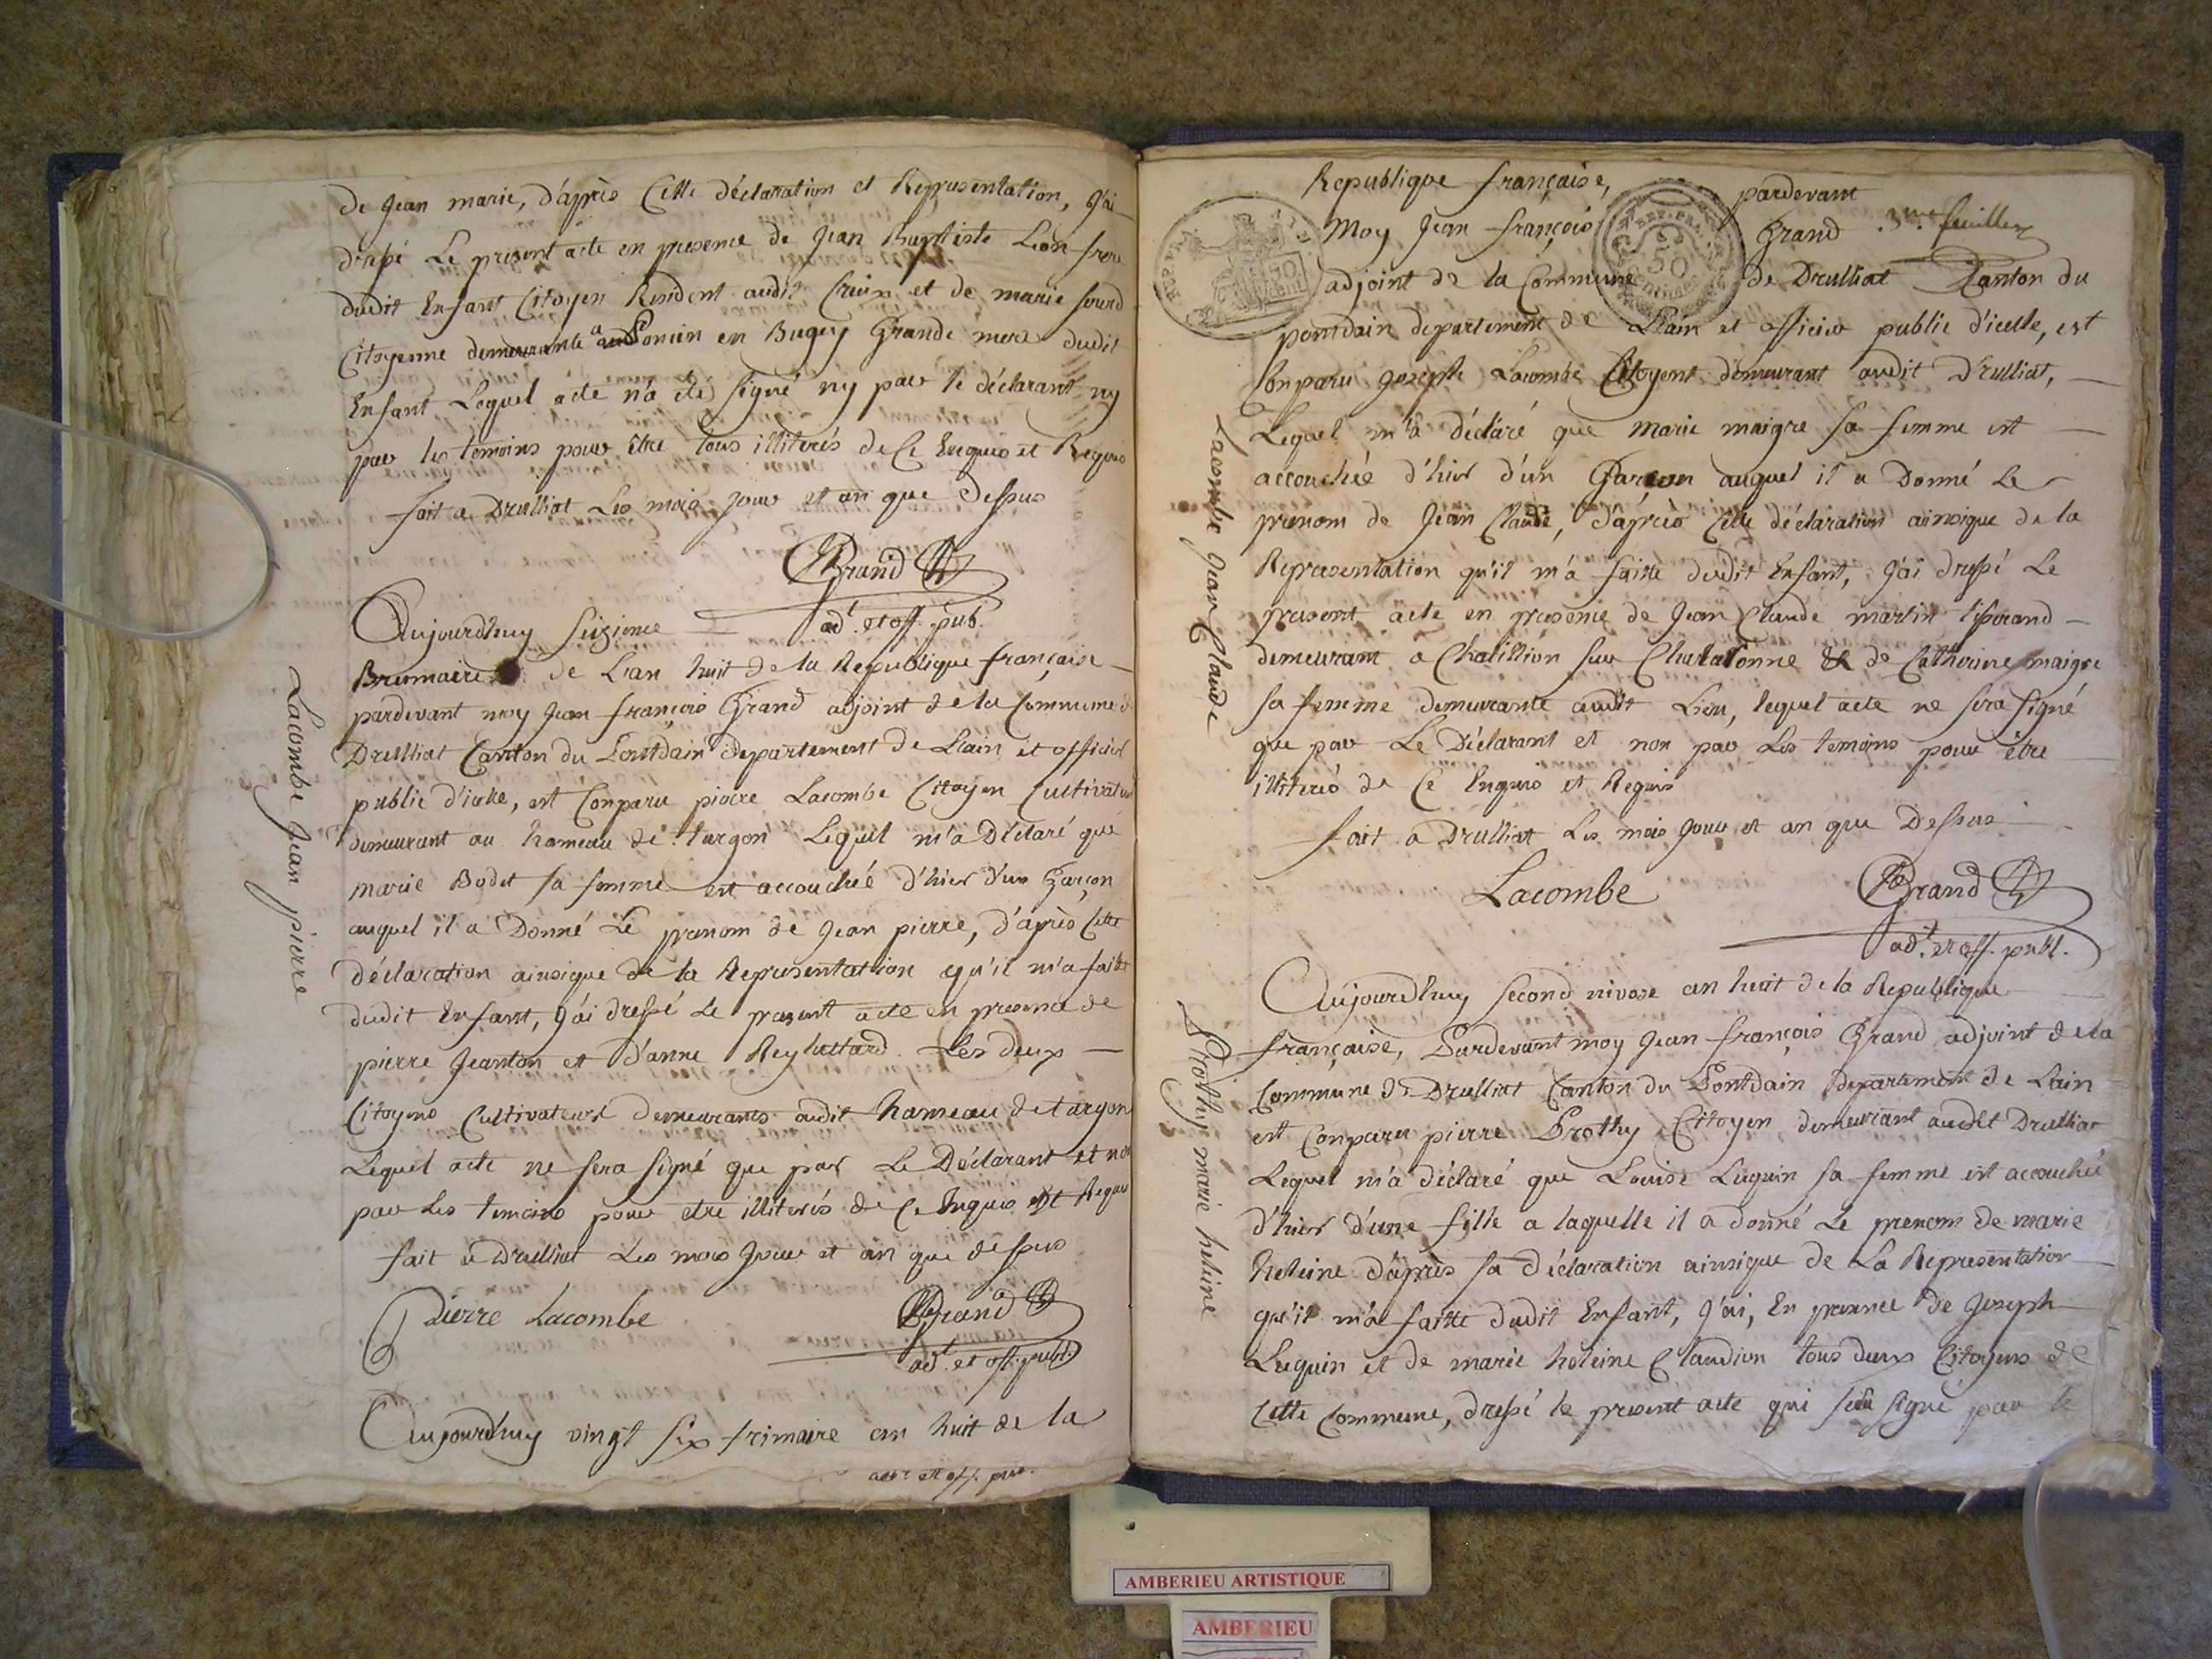 de Jean marie, d'après Cette déclaration et Representation, J'ai
dressé Le present acte en presence de Jean Baptiste Leon frere
dudit Enfant Citoyen Resident audit et de marie
Citoyenne demeurante a en Bugey Grande mere dudit
Enfant Lequel acte n'a été signé ny par le déclarant ny
par les temoins pour être tous illiterés de Ce Enquis et Requis
fait a Druilliat Les mois jour et an que dessus
Grand
adt. et off. pub.
Aujourdhuy seizieme
Brumaire de Lan huit de la Republique française
pardevant moy Jean françois Grand adjoint de la Commune de
Druilliat Canton du Pontdain departement de Lain et officier
public d'icelle, est Conparu pierre Lacombe Citoyen Cultivateur
demeurant au hameau de turgon Lequel m'a Déclaré que
marie Bodet sa femme est accouchée d'hier d'un Garçon
auquel il a Donné Le prenom de Jean pierre, d'après Cette
déclaration ainsique de la Representation qu'il m'a faitte
dudit Enfant, J'ai dressé Le present acte en presence de
pierre Jeanton et d'anne Les deux
Citoyens Cultivateurs demeurants audit hameau de turgon
Lequel acte ne sera signé que par Le Déclarant et non
par Les temoins pour etre illiterés de Ce Enquis et Requis
fait a Druilliat Les mois Jour et an que dessus
Pierre Lacombe Grand
adt. et off. publ.
Aujourd'huy vingt six frimaire an huit de la
adt et off. pub.
Lacombe Jean pierre
Republique française, pardevant
Moy Jean françois Grand 3me. feuillet
adjoint de la Commune de Druilliat Canton du
pontdain departement de Lain et officier public d'icelle, est
Conparu Joseph Lacombe Citoyent demeurant audit Druilliat,
Lequel m'a déclaré que marie maigre sa femme est
accouchée d'hier d'un Garçon auquel il a Donné Le
prenom de Jean Claude, d'après Cette déclaration ainsique de la
Representation qu'il m'a faitte dudit Enfant, J'ai dressé Le
present acte en presence de Jean Claude martin tisserand
demeurant a Chatillion sur Chalaronne & de Catherine maigre
sa femme demeurante audit Lieu, lequel acte ne sera signé
que par Le Déclarant et non par Les temoins pour être
illiterés de Ce Enquis et Requis
fait a Druilliat Les mois Jour et an que Dessus
Lacombe Grand
adt. et off. publ.
Lacombe Jean Claude
Aujourdhuy second nivose an huit de la Republique
française, Pardevant moy Jean françois Grand adjoint de la
Commune de Druilliat Canton du Pontdain departement de Lain
est Conparu pierre Brothy Citoyen demeurant audit Druilliat
Lequel m'a déclaré que Louise Luquin sa femme est accouchée
d'hier d'une fille a laquelle il a donné Le prenom de marie
heleine d'après sa déclaration ainsique de La Representation
qu'il m'a faitte dudit Enfant, J'ai, En presence de Joseph
Luquin et de marie heleine Claudion tous deux Citoyens de
Cette Commune, dressé le present acte qui sera signé par le
Brothy marie heleine
REP. FRA.
50
AMBERIEU ARTISTIQUE
AMBERIEU